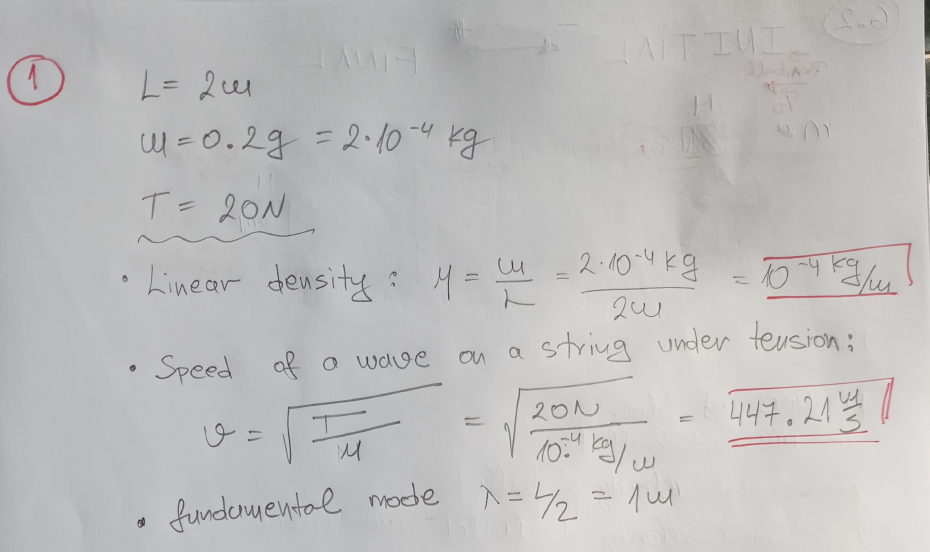 1
L = 2m
m = 0.2g = 2·10⁻⁴ kg
T = 20N
• Linear density: μ = m/L = 2·10⁻⁴ kg / 2m = 10⁻⁴ kg/m
• Speed of a wave on a string under tension:
v = √(T/μ) = √(20N / 10⁻⁴ kg/m) = 447.21 m/s
• fundamental mode λ = L/2 = 1m